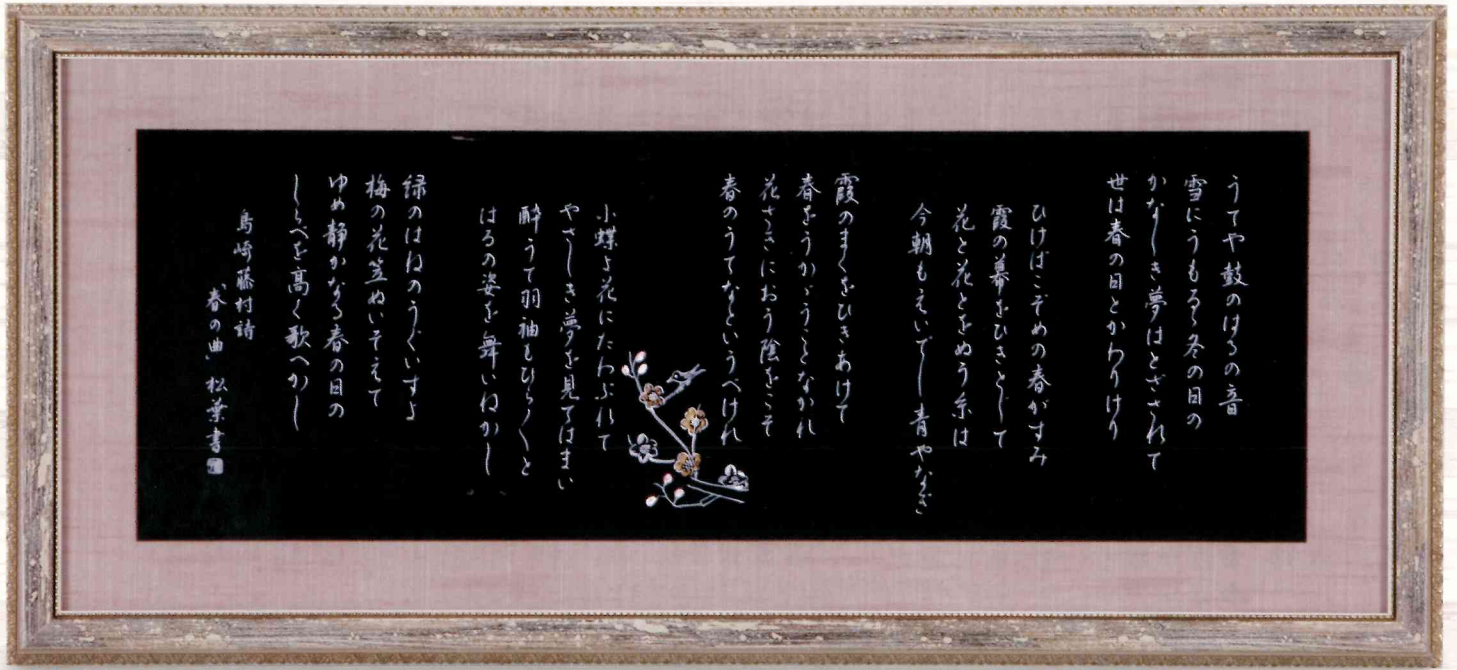 うてや鼓のはるの音
雪にうもるゝ冬の日の
かなしき夢はとざされて
世は春の日とかわりけり
ひけばこぞめの春がすみ
霞の幕をひきとじて
花と花とをぬう糸は
今朝もえいでし青やなぎ
霞のまくをひきあけて
春をうかゞうことなかれ
花さきにおう陰をこそ
春のうてなというべけれ
小蝶よ花にたわぶれて
やさしき夢を見てはまい
酔うて羽袖もひら〱と
はるの姿を舞いねかし
緑のはねのうぐいすよ
梅の花笠ぬいそえて
ゆめ静かなる春の日の
しらべを高く歌へかし
島崎藤村詩
「春の曲」 松葉書